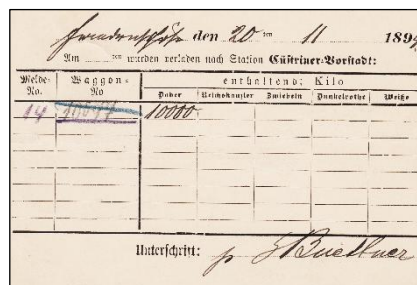 den 20ten 11 189
Am ten wurden verladen nach Station Cüstriner-Vorstadt:
Melde-No. Waggon-No enthaltend: Kilo
Daber Reichskanzler Zwiebeln Dunkelrothe Weiße
14 10000
Unterschrift: p Buettner